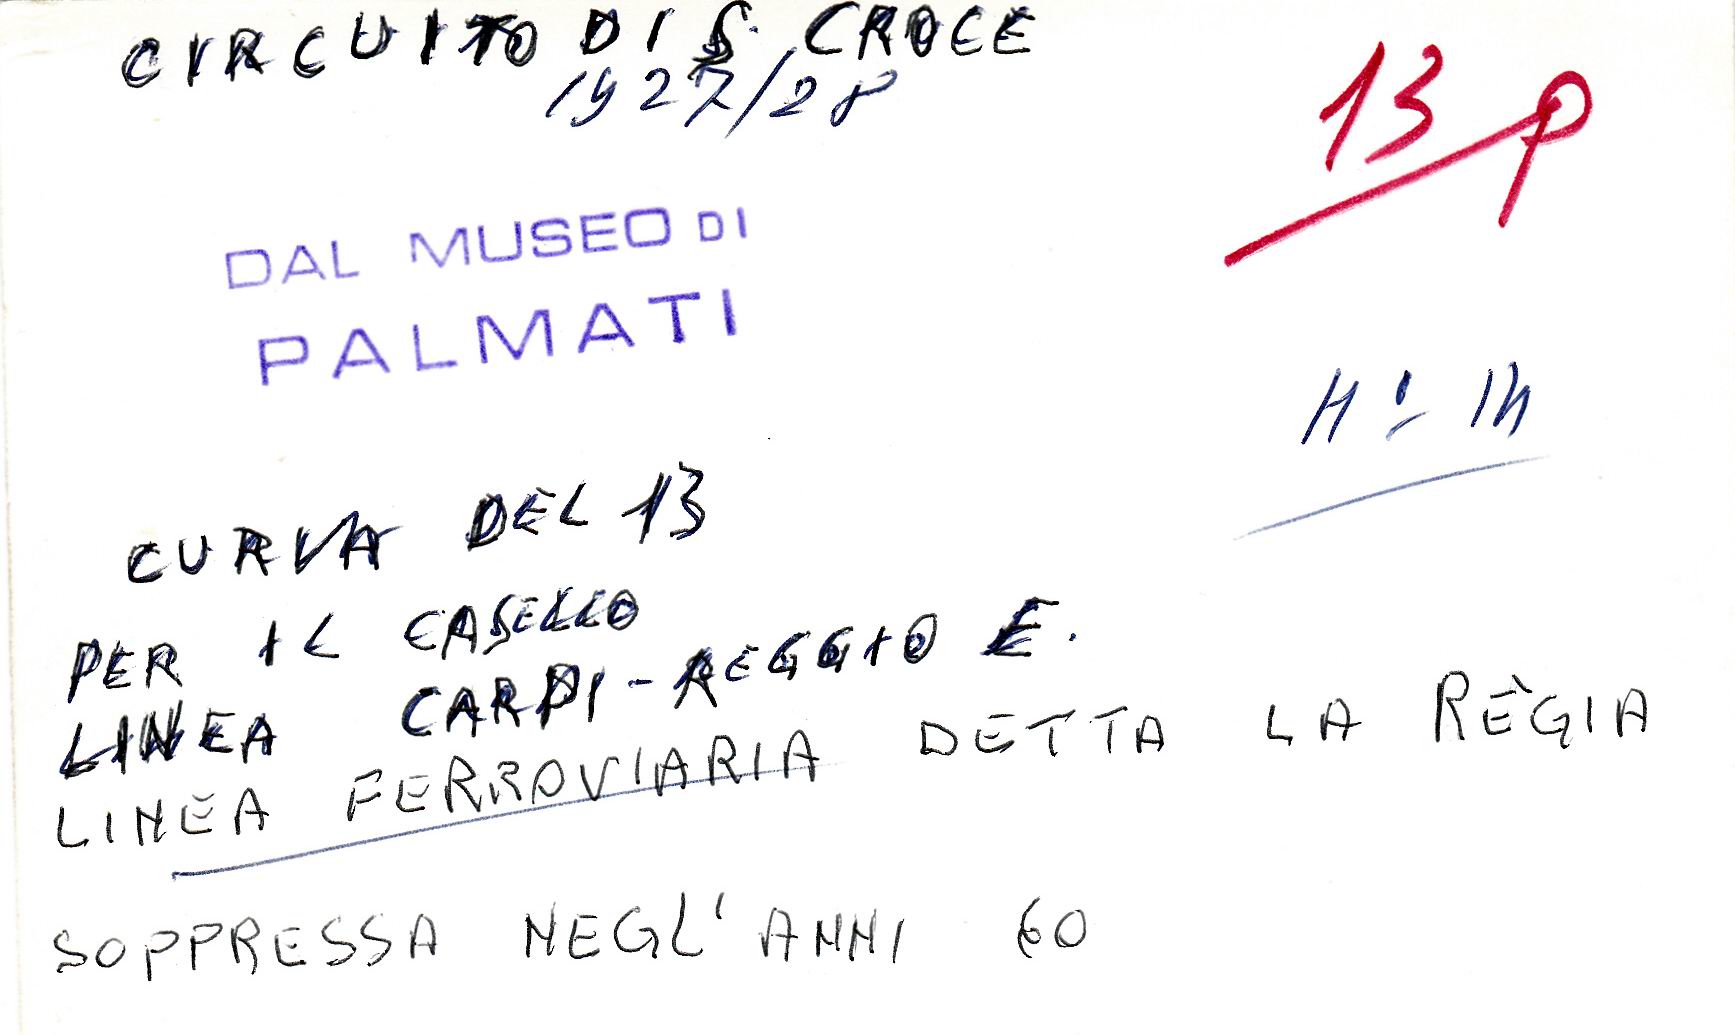 CIRCUITO DI S. CROCE
1927/28
13 P
DAL MUSEO DI
PALMATI
N° 14
CURVA DEL 13
PER IL CASELLO
LINEA CARPI-REGGIO E.
LINEA FERROVIARIA DETTA LA RÈGIA
SOPPRESSA NEGL'ANNI 60